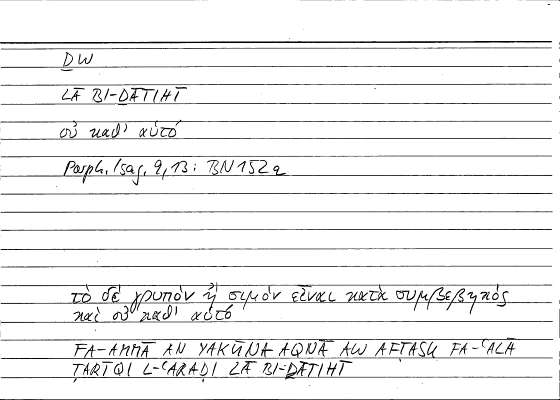 D̲W
LĀ BI-D̲ĀTIHĪ
οὐ καθ' αὑτό
Porph. Isag. 9,13: BN 152a
τὸ δὲ γρυπὸν ἢ σιμὸν εἶναι κατὰ συμβεβηκὸς
καὶ οὐ καθ' αὑτό
FA-AMMĀ AN YAKŪNA AQNĀ AW AFṬASU FA-ʿALĀ
ṬARĪQI L-ʿARAḌI LĀ BI-D̲ĀTIHĪ